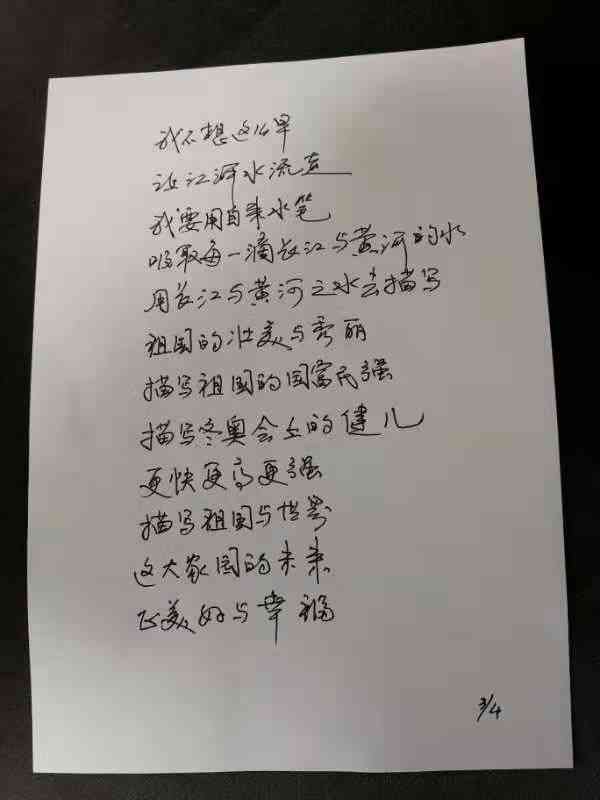 我不想这么早
让江河水流去
我要用自来水笔
吸取每一滴长江与黄河的水
用长江与黄河之水去描写
祖国的壮美与秀丽
描写祖国的国富民强
描写冬奥会上的健儿
更快更高更强
描写祖国与世界
这大家园的未来
美好与幸福
3/4